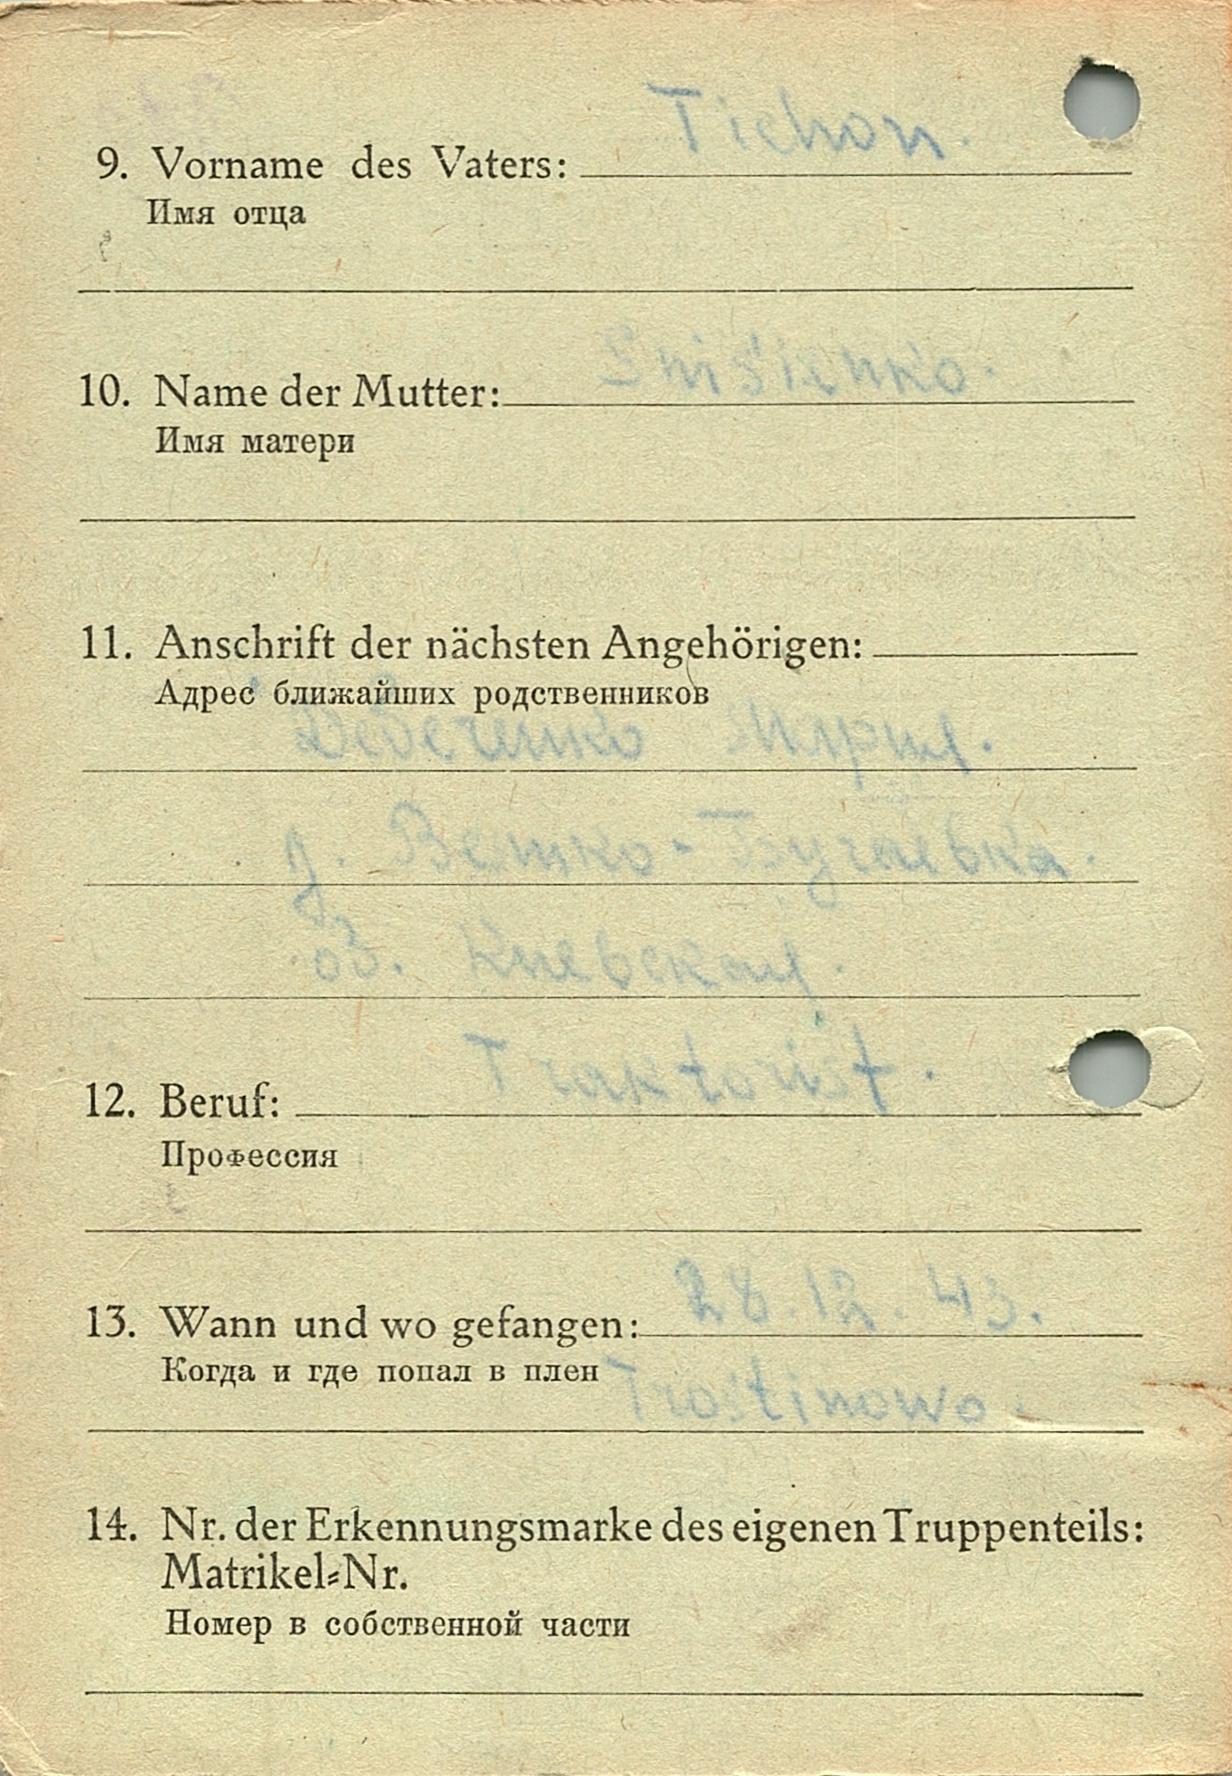 9. Vorname des Vaters: Tichon.
Имя отца
10. Name der Mutter:
Имя матери
11. Anschrift der nächsten Angehörigen:
Адрес ближайших родственников
д.
об. Киевская.
12. Beruf: Traktorist.
Профессия
13. Wann und wo gefangen: 28.12.43.
Когда и где попал в плен Trostinowo.
14. Nr. der Erkennungsmarke des eigenen Truppenteils:
Matrikel-Nr.
Номер в собственной части